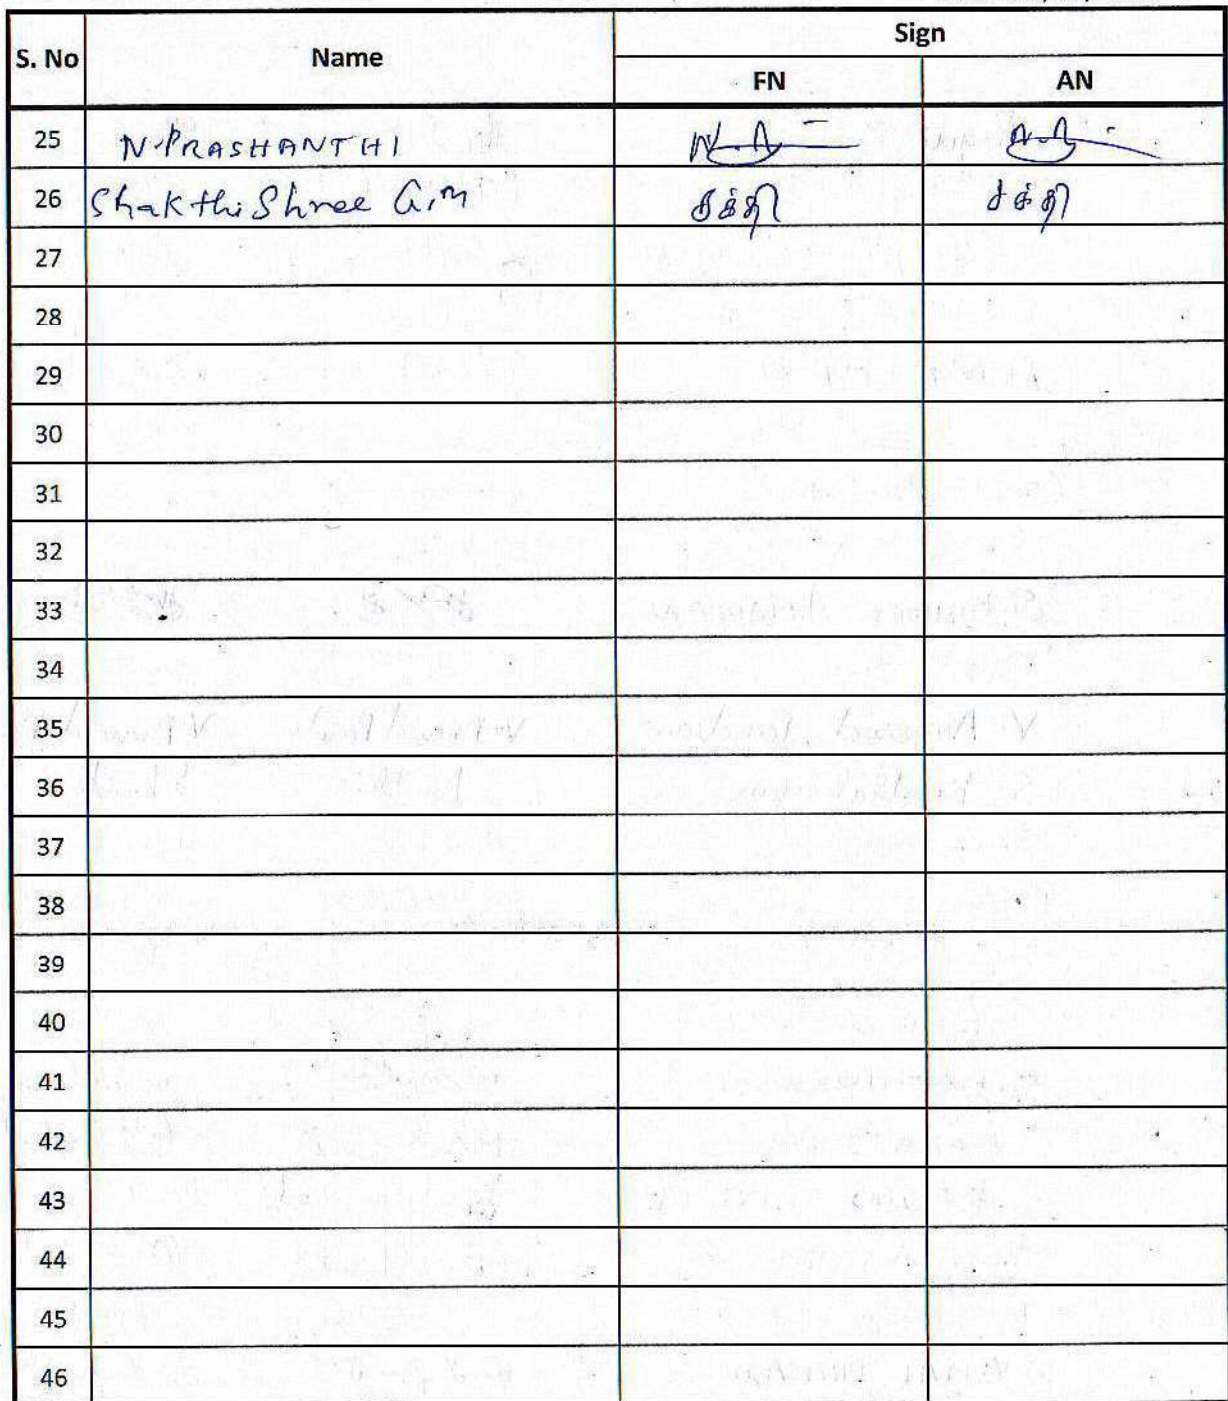 S. No Name Sign
FN AN
25 N.PRASHANTHI
26 Shakthi Shree G.M சக்தி சக்தி
27
28
29
30
31
32
33
34
35
36
37
38
39
40
41
42
43
44
45
46